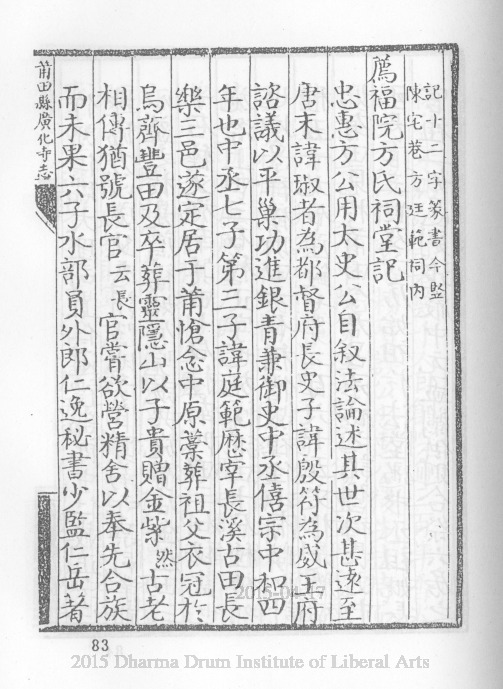 記十二字篆書今竪
陳宅巷方珏範祠内
薦福院方氏祠堂記
忠惠方公用太史公自叙法論述其世次甚遠至
唐末諱琡者為都督府長史子諱殷符為威王府
諮議以平巢功進銀青兼御史中丞僖宗中和四
年也中丞七子第三子諱庭範歷宰長溪古田長
樂三邑遂定居于莆愴念中原藁葬祖父衣冠於
烏齊豐田及卒葬靈隱山以子貴贈金紫然古老
相傳猶號長官云長官嘗欲營精舍以奉先合族
而未果六子水部員外郎仁逸秘書少監仁岳著
莆田縣廣化寺志
83
2015-04-17
2015 Dharma Drum Institute of Liberal Arts